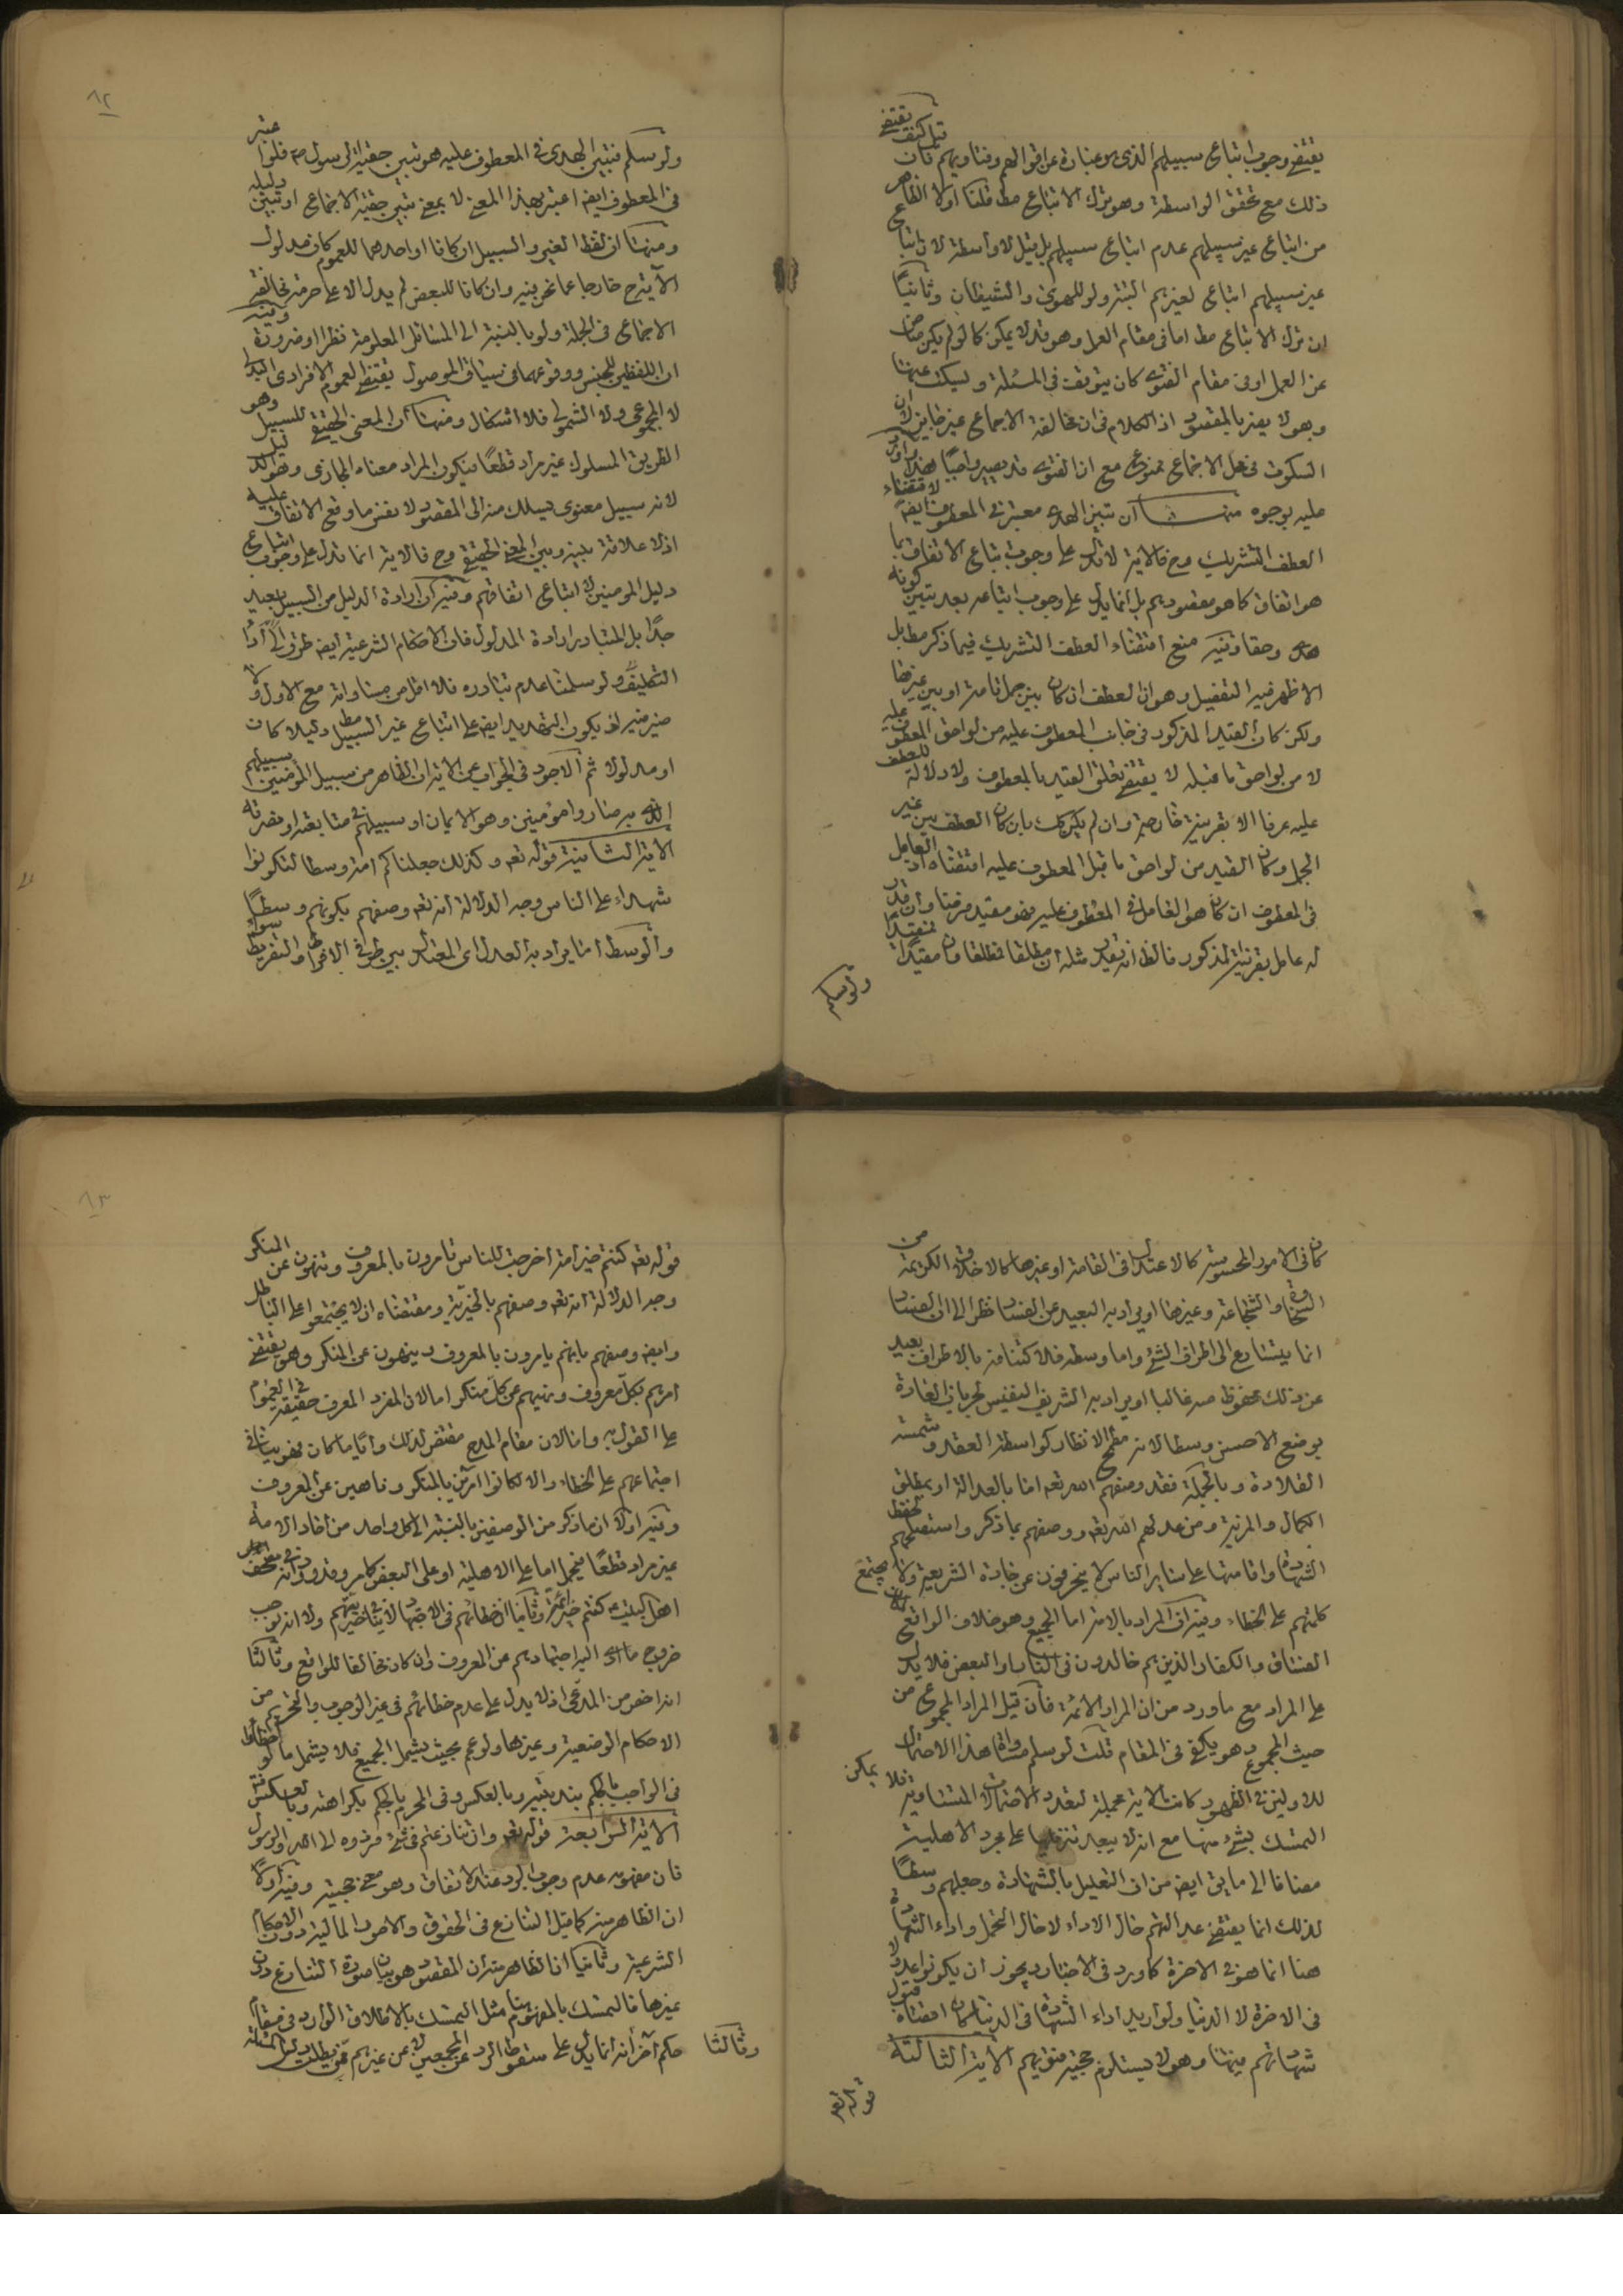 يقتضى وجوب اتباع سبيلهم الذى هو عبارة عن اقوالهم وفتاويهم فان قيل كيف يقتضى
ذلك مع تحقق الواسطة وهو ترك الاتباع مط قلنا اولا الظاهر
من اتباع غير سبيلهم عدم اتباع سبيلهم بل قيل لا واسطة لان اتباع
غير سبيلهم اتباع لغيرهم البتة ولو للهوى والشيطان وثانيا
ان ترك الاتباع مط اما فى مقام العمل وهو قد لا يمكن كما لو لم يكن مناص
عن العمل او فى مقام الفتوى كان يتوقف فى المسئلة ويسكت عنها
وهو لا يضر بالمقصود اذ الكلام فى ان مخالفة الاجماع غير جايز لان
السكوت فى محل الاجماع ممنوع مع ان الفتوى قد يصير واجبا هذا واورد
عليه بوجوه منها ان تبين الهدى معتبر فى المعطوف ايضا لاقتضاء
العطف التشريك وح فالاية لا تدل على وجوب اتباع الاتفاق بما
هو اتفاق كما هو مقصودهم بل انما يدل على وجوب اتباعه بعد تبين كونه
هدى وحقا وفيه منع اقتضاء العطف التشريك فيما ذكر مط بل
الاظهر فيه التفصيل وهو ان العطف ان كان بين جمل تامة او بين غيرها
ولكن كان القيد المذكور فى جانب المعطوف عليه من لواحق المعطوف عليه
لا من لواحق ما قبله لا يقتضى تعلق القيد بالمعطوف ولا دلالة للعطف
عليه عرفا الا بقرينة خارجية وان لم يكن كك بان كان العطف بين غير
الجمل وكان القيد من لواحق ما قبل المعطوف عليه اقتضاه اذ العامل
فى المعطوف ان كان هو العامل فى المعطوف عليه فهو مقيد فرضا وان قدر
له عامل بقرينة المذكور فالظ انه يقدر مثله ان مطلقا فمطلقا وان مقيدا فمقيدا
ولو سلم
٨٢
ولو سلم فتبين الهدى فى المعطوف عليه هو تبين حقية الرسول ص فلو اعتبر
فى المعطوف ايضا اعتبر بهذا المعنى لا بمعنى تبين حقية الاجماع او تبين دليله
ومنها ان لفظ الغير والسبيل ان كانا او احدهما للعموم كان مدلول
الاية ح خارجا عما نحن فيه وان كانا للبعض لم يدل الا على حرمة مخالفة
الاجماع فى الجملة ولو بالنسبة الى المسائل المعلومة نظرا او ضرورة وفيه
ان اللفظين للجنس ووقوعهما فى سياق الموصول يقتضى العموم الافرادى البدلى
لا المجموعى ولا الشمولى فلا اشكال ومنها ان المعنى الحقيقى للسبيل وهو
الطريق المسلوك غير مراد قطعا فيكون المراد معناه المجازى وهو الدليل
لانه سبيل معنوى يسلك منه الى المقصود لا نفس ما وقع الاتفاق عليه
اذ لا علاقة بينه وبين المعنى الحقيقى وح فالاية انما تدل على وجوب اتباع
دليل المومنين لا اتباع اتفاقهم وفيه ان ارادة الدليل من السبيل بعيد
جدا بل المتبادر ارادة المدلول فان الاحكام الشرعية ايضا طرق الى اداء
التكليف ولو سلمنا عدم تبادره فلا اقل من مساواته مع الاول ولا
ضير فيه اذ يكون التهديد ايضا على اتباع غير السبيل مط دليلا كان
او مدلولا ثم الاجود فى الجواب عن الاية ان الظاهر من سبيل المؤمنين سبيلهم
الذى به صاروا مؤمنين وهو الايمان او سبيلهم فى متابعته او نصرته
الاية الثانية قوله تعم وكذلك جعلناكم امة وسطا لتكونوا
شهداء على الناس وجه الدلالة انه تعم وصفهم بكونهم وسطا
والوسط اما يراد به العدل اى المعتدل بين طرفى الافراط والتفريط سواء
كان فى الامور المحسوسة كالاعتدال فى القامة او غيرها كالاخلاق الكريمة من
السخاوة والشجاعة وغيرها او يراد به البعيد عن الفساد نظرا الى ان الفساد
انما يتسارع الى اطراف الشئ واما وسطه فلاكتنافه بالاطراف بعيد
عن ذلك محفوظ منه غالبا او يراد به الشريف النفيس لجريان العادة
بوضع الاحسن وسطا لانه مطمح الانظار كواسطة العقد وشمسة
القلادة وبالجملة فقد وصفهم الله تعم اما بالعدالة او بمطلق
الكمال والمزية ومن عدلهم الله تعم ووصفهم بما ذكر واستصلحهم لحفظ
الشهادة واقامتها على ساير الناس لا ينحرفون عن جادة الشريعة ولا يجتمع
كلمتهم على الخطاء وفيه ان المراد بالامة اما الجميع وهو خلاف الواقع لمكان
الفساق والكفار الذين هم خالدون فى النار او البعض فلا يدل
على المراد مع ما ورد من ان المراد الائمة فان قيل المراد المجموع من
حيث المجموع وهو يكفى فى المقام قلت لو سلم مساواة هذا الاحتمال
للاولين فى الظهور كانت الاية مجملة لتعدد الاحتمالات المتساوية فلا يمكن
التمسك بشئ منها مع انه لا يبعد تنزيلها على مجرد الاهلية
مضافا الى ما يق ايضا من ان التعليل بالشهادة وجعلهم وسطا
لذلك انما يقتضى عدالتهم حال الاداء لا حال التحمل واداء الشهادة
هنا انما هو فى الاخرة كما ورد فى الاخبار ويجوز ان يكونوا عدولا
فى الاخرة لا الدنيا ولو اريد اداء الشهادة فى الدنيا كان اقتضاه قبول
شهادتهم فيها وهو لا يستلزم حجية فتويهم الاية الثالثة
قوله تعم
٨٣
قوله تعم كنتم خير امة اخرجت للناس تامرون بالمعروف وتنهون عن المنكر
وجه الدلالة انه تعم وصفهم بالخيرية ومقتضاه ان لا يجتمعوا على الباطل
وايضا وصفهم بانهم يامرون بالمعروف وينهون عن المنكر وهو يقتضى
امرهم بكل معروف ونهيهم عن كل منكر اما لان المفرد المعرف حقيقة فى العموم
على القول به واما لان مقام المدح مقتض لذلك وايا ما كان فهو ينافى
اجتماعهم على الخطاء والا لكانوا امرين بالمنكر وناهين عن المعروف
وفيه اولا ان ما ذكر من الوصفين بالنسبة الى كل واحد من احاد الامة
غير مراد قطعا فيحمل اما على الاهلية او على البعض كما مر وقد ورد انه فى مصحف
اهل البيت ع كنتم خير ائمة وثانيا ان خطائهم فى الاجتهاد لا ينافى خيريتهم ولا انه يوجب
خروج ما ادى اليه اجتهادهم من المعروف وان كان مخالفا للواقع وثالثا
انه اخص من المدعى اذ لا يدل على عدم خطائهم فى غير الوجوب والتحريم من
الاحكام الوضعية وغيرها ولو عم بحيث يشمل الجميع فلا يشمل ما لو اخطاوا
فى الواجب بالحكم بندبيته وبالعكس وفى الحرام بالحكم بكراهته وبالعكس
الاية الرابعة قوله تعم وان تنازعتم فى شئ فردوه الى الله والرسول
فان مفهومه عدم وجوب الرد عند الاتفاق وهو معنى حجيته وفيه اولا
ان الظاهر منه كما قيل التنازع فى الحقوق والامور المالية دون الاحكام
الشرعية وثانيا ان الظاهر منه ان المقصود هو بيان صورة التنازع دون
غيرها فالتمسك بالمفهوم هنا مثل التمسك بالاطلاق الوارد فى مقام
حكم اخر وثالثا انه انما يدل على سقوط الرد عن المجمعين لا عن غيرهم ممن يطلب دليل المسئلة